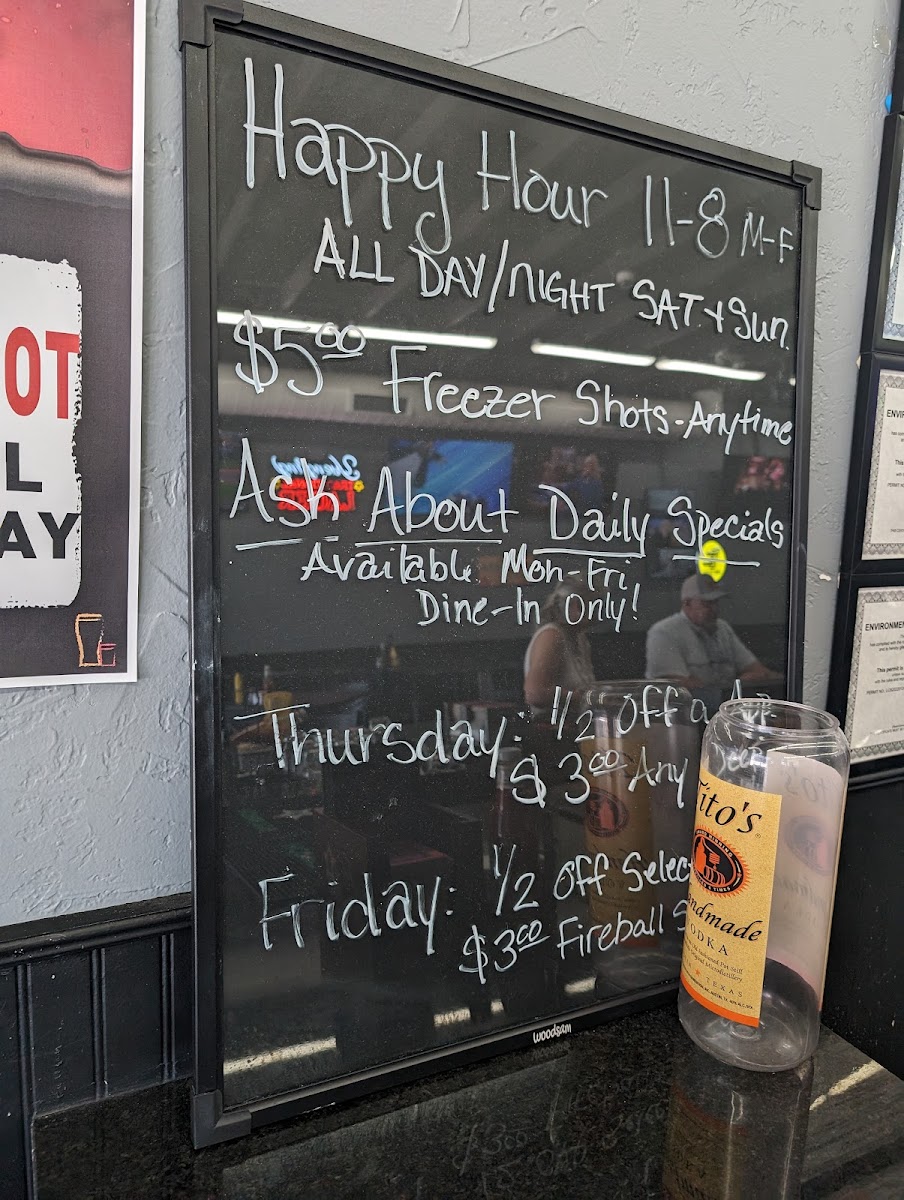 Happy Hour 11-8 M-F
ALL DAY/NIGHT SAT + Sun.
$5.00 Freezer Shots - Anytime
Ask About Daily Specials
Available Mon-Fri
Dine-In Only!
Thursday: 1/2 Off a
$3.00 Any
Friday: 1/2 Off Selec
$3.00 Fireball S
woodsam
OT
L
AY
Tito's
ndmade
ODKA
TEXAS
ENVIR
ENVIRONMEN
This permit is